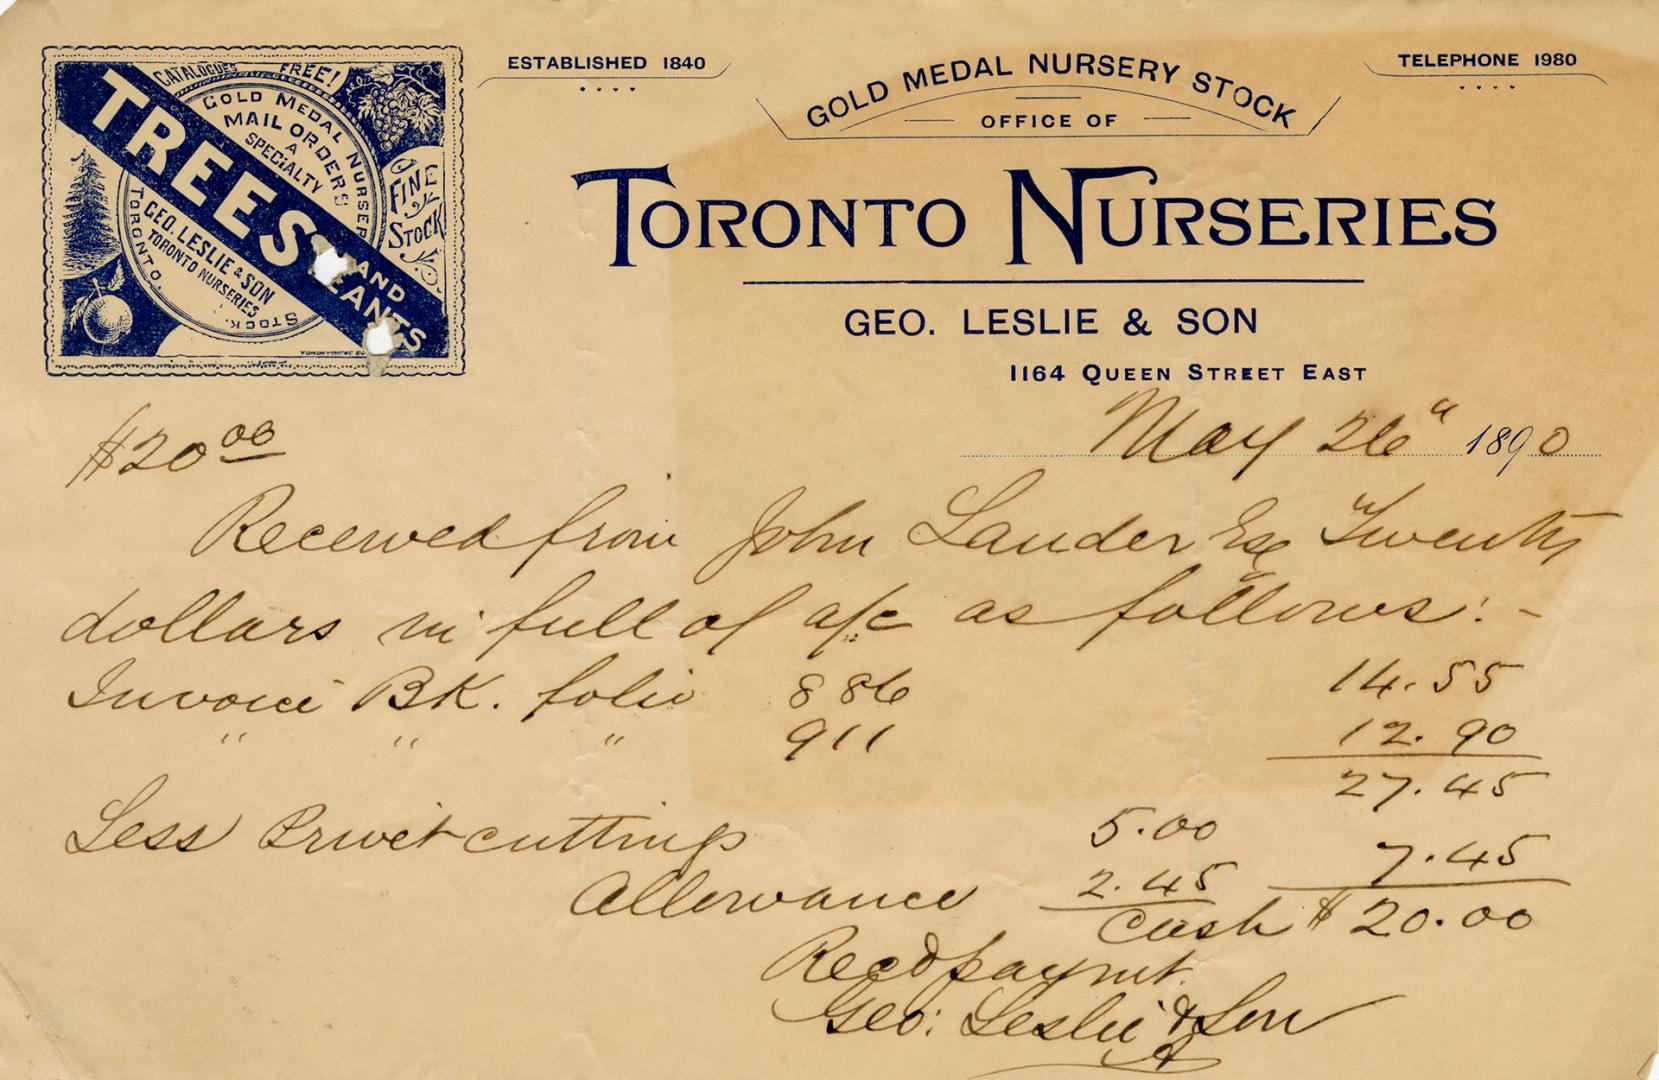 CATALOGUES FREE!
TREES AND PLANTS
GOLD MEDAL NURSERY STOCK. TORONTO.
MAIL ORDERS
A
SPECIALTY
FINE
STOCK
GEO. LESLIE & SON
TORONTO NURSERIES
ESTABLISHED 1840
GOLD MEDAL NURSERY STOCK
TELEPHONE 1980
OFFICE OF
TORONTO NURSERIES
GEO. LESLIE & SON
1164 QUEEN STREET EAST
May 26" 1890
$20.00
Received from John Lauder Esq Twenty
dollars in full of a/c as follows:-
Invoice BK. folio 886 14.55
" " " 911 12.90
27.45
Less Privet cuttings 5.00 7.45
Allowance 2.45
Cash $20.00
Recd paymt.
Geo: Leslie & Son